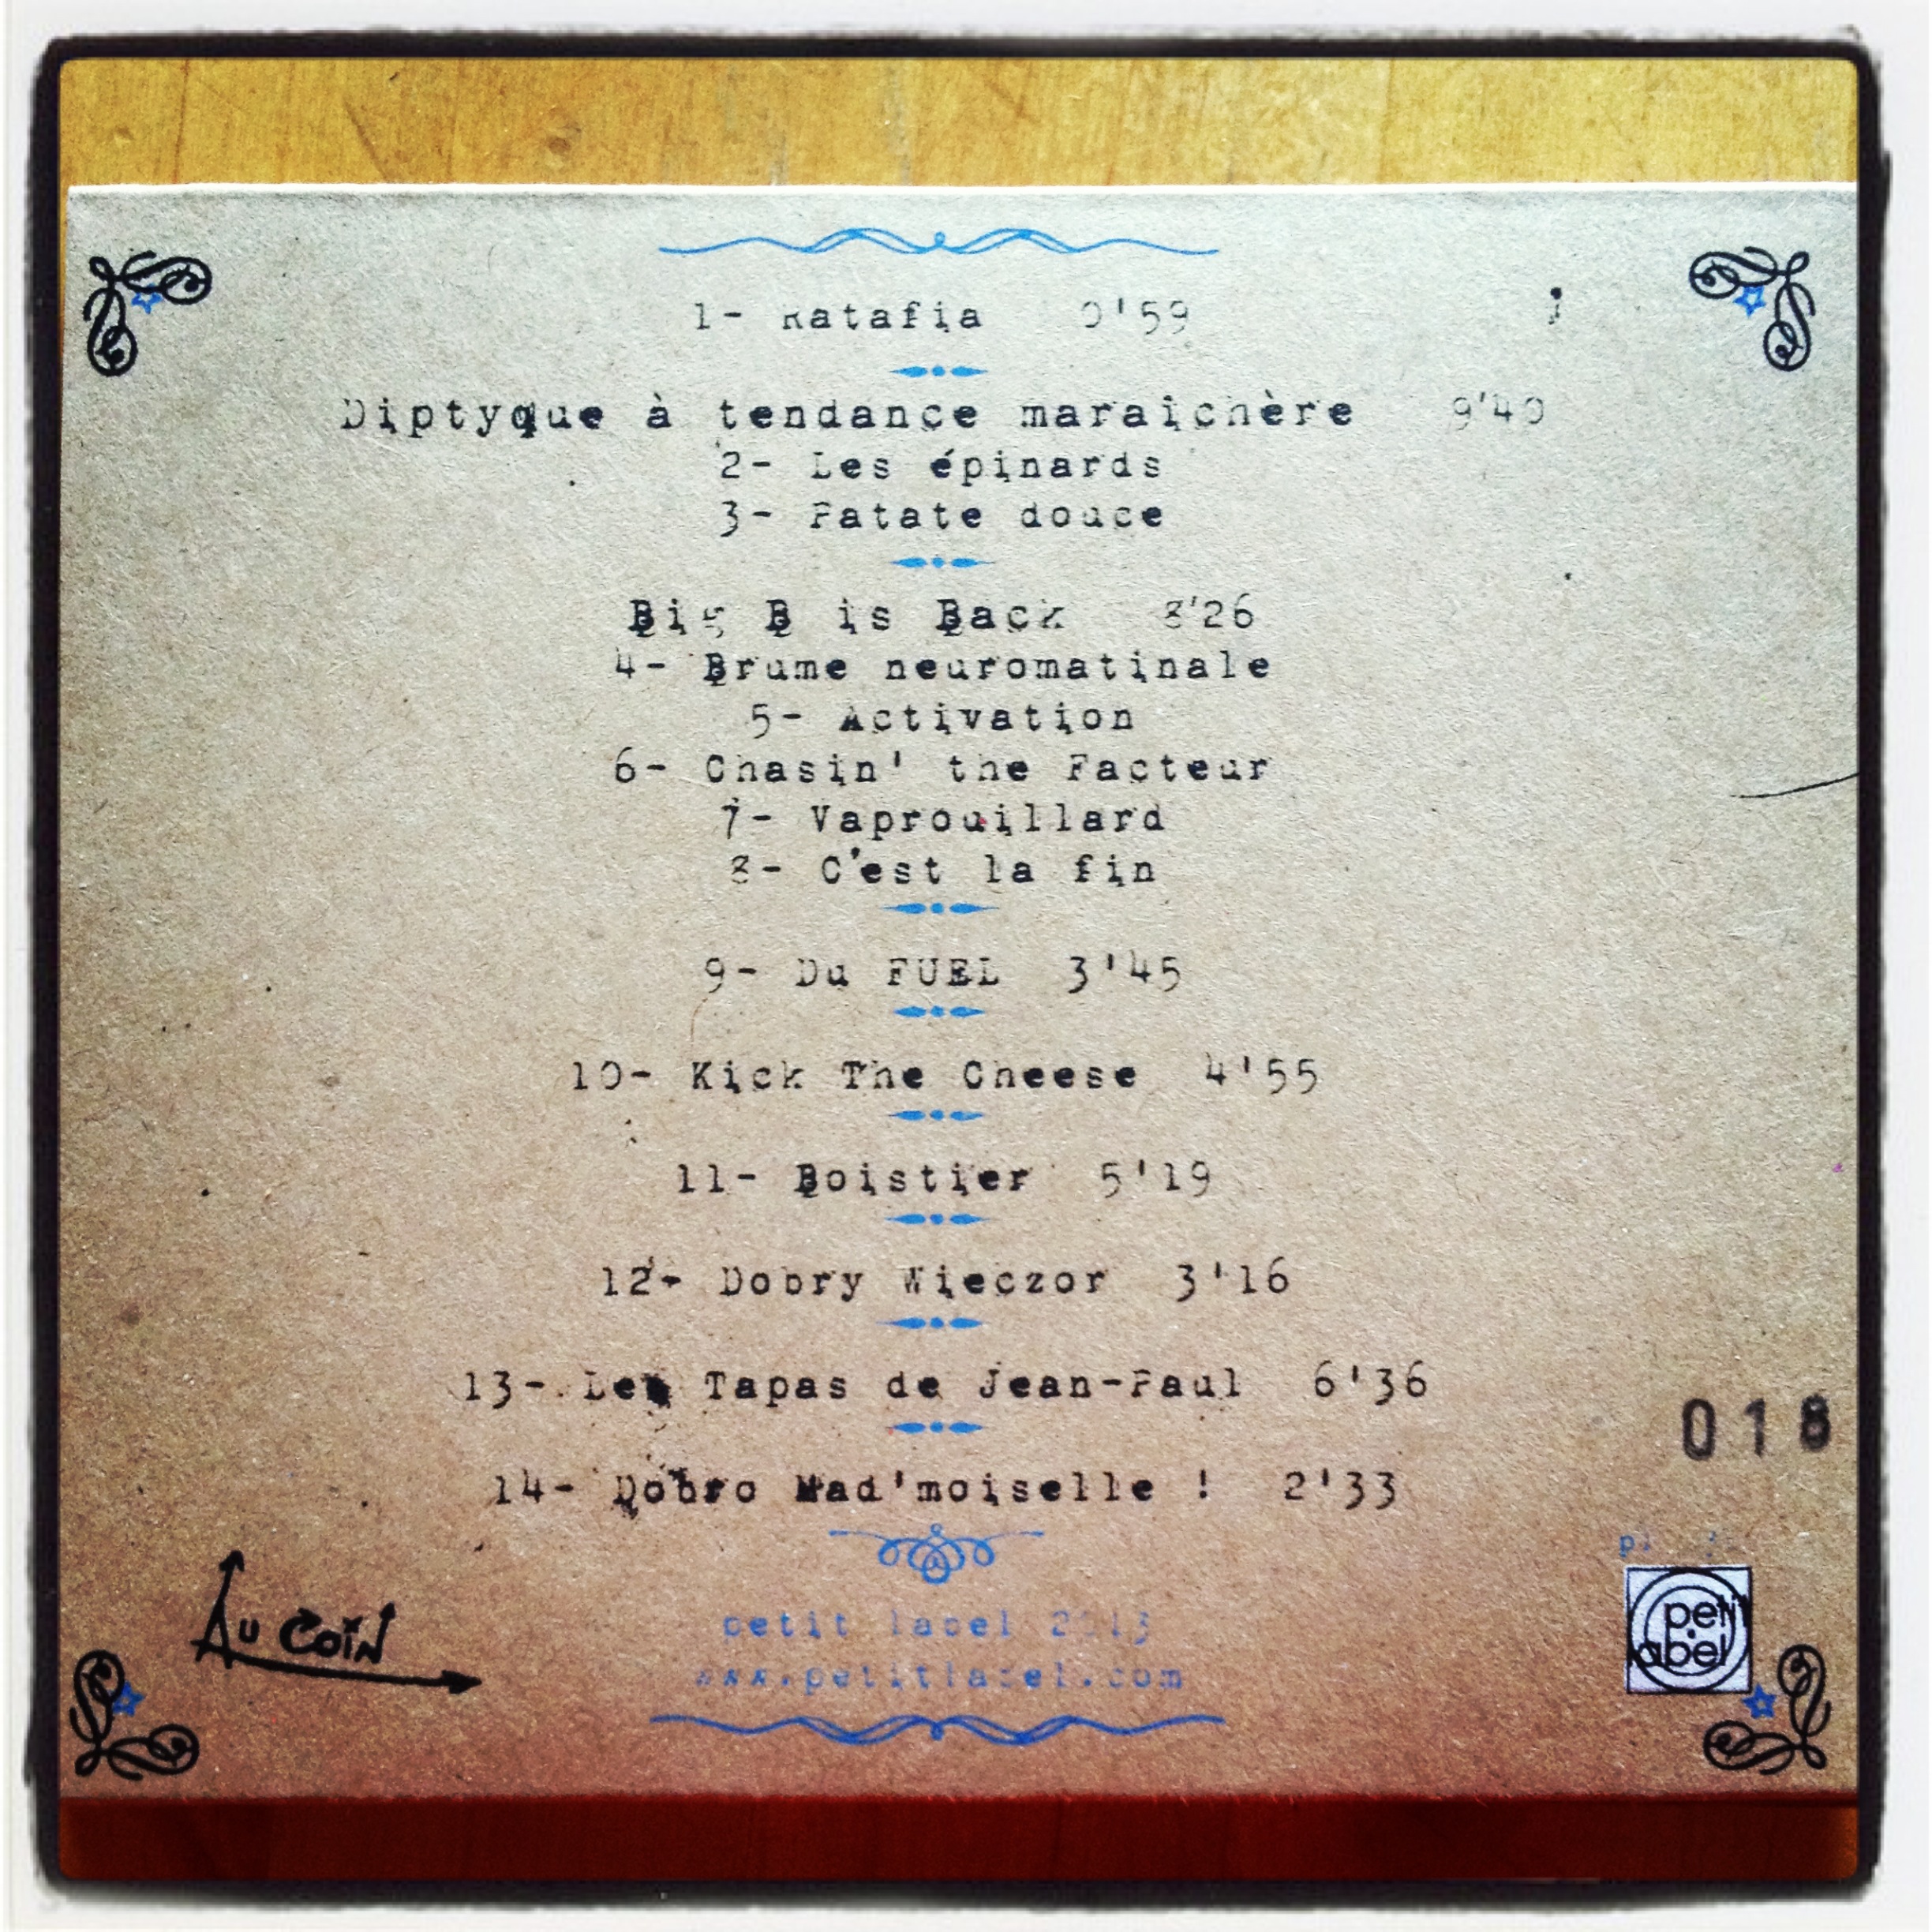 1- Ratafia 0'59
Diptyque à tendance maraîchère 9'40
2- Les épinards
3- Patate douce
Big B is Back 8'26
4- Brume neuromatinale
5- Activation
6- Chasin' the Facteur
7- Vaprouillard
8- C'est la fin
9- Du FUEL 3'45
10- Kick The Cheese 4'55
11- Boistier 5'19
12- Dobry Wieczor 3'16
13- Les Tapas de Jean-Paul 6'36
018
14- Dobro Mad'moiselle ! 2'33
Au coin
petit label 2013
www.petitlabel.com
petit
label